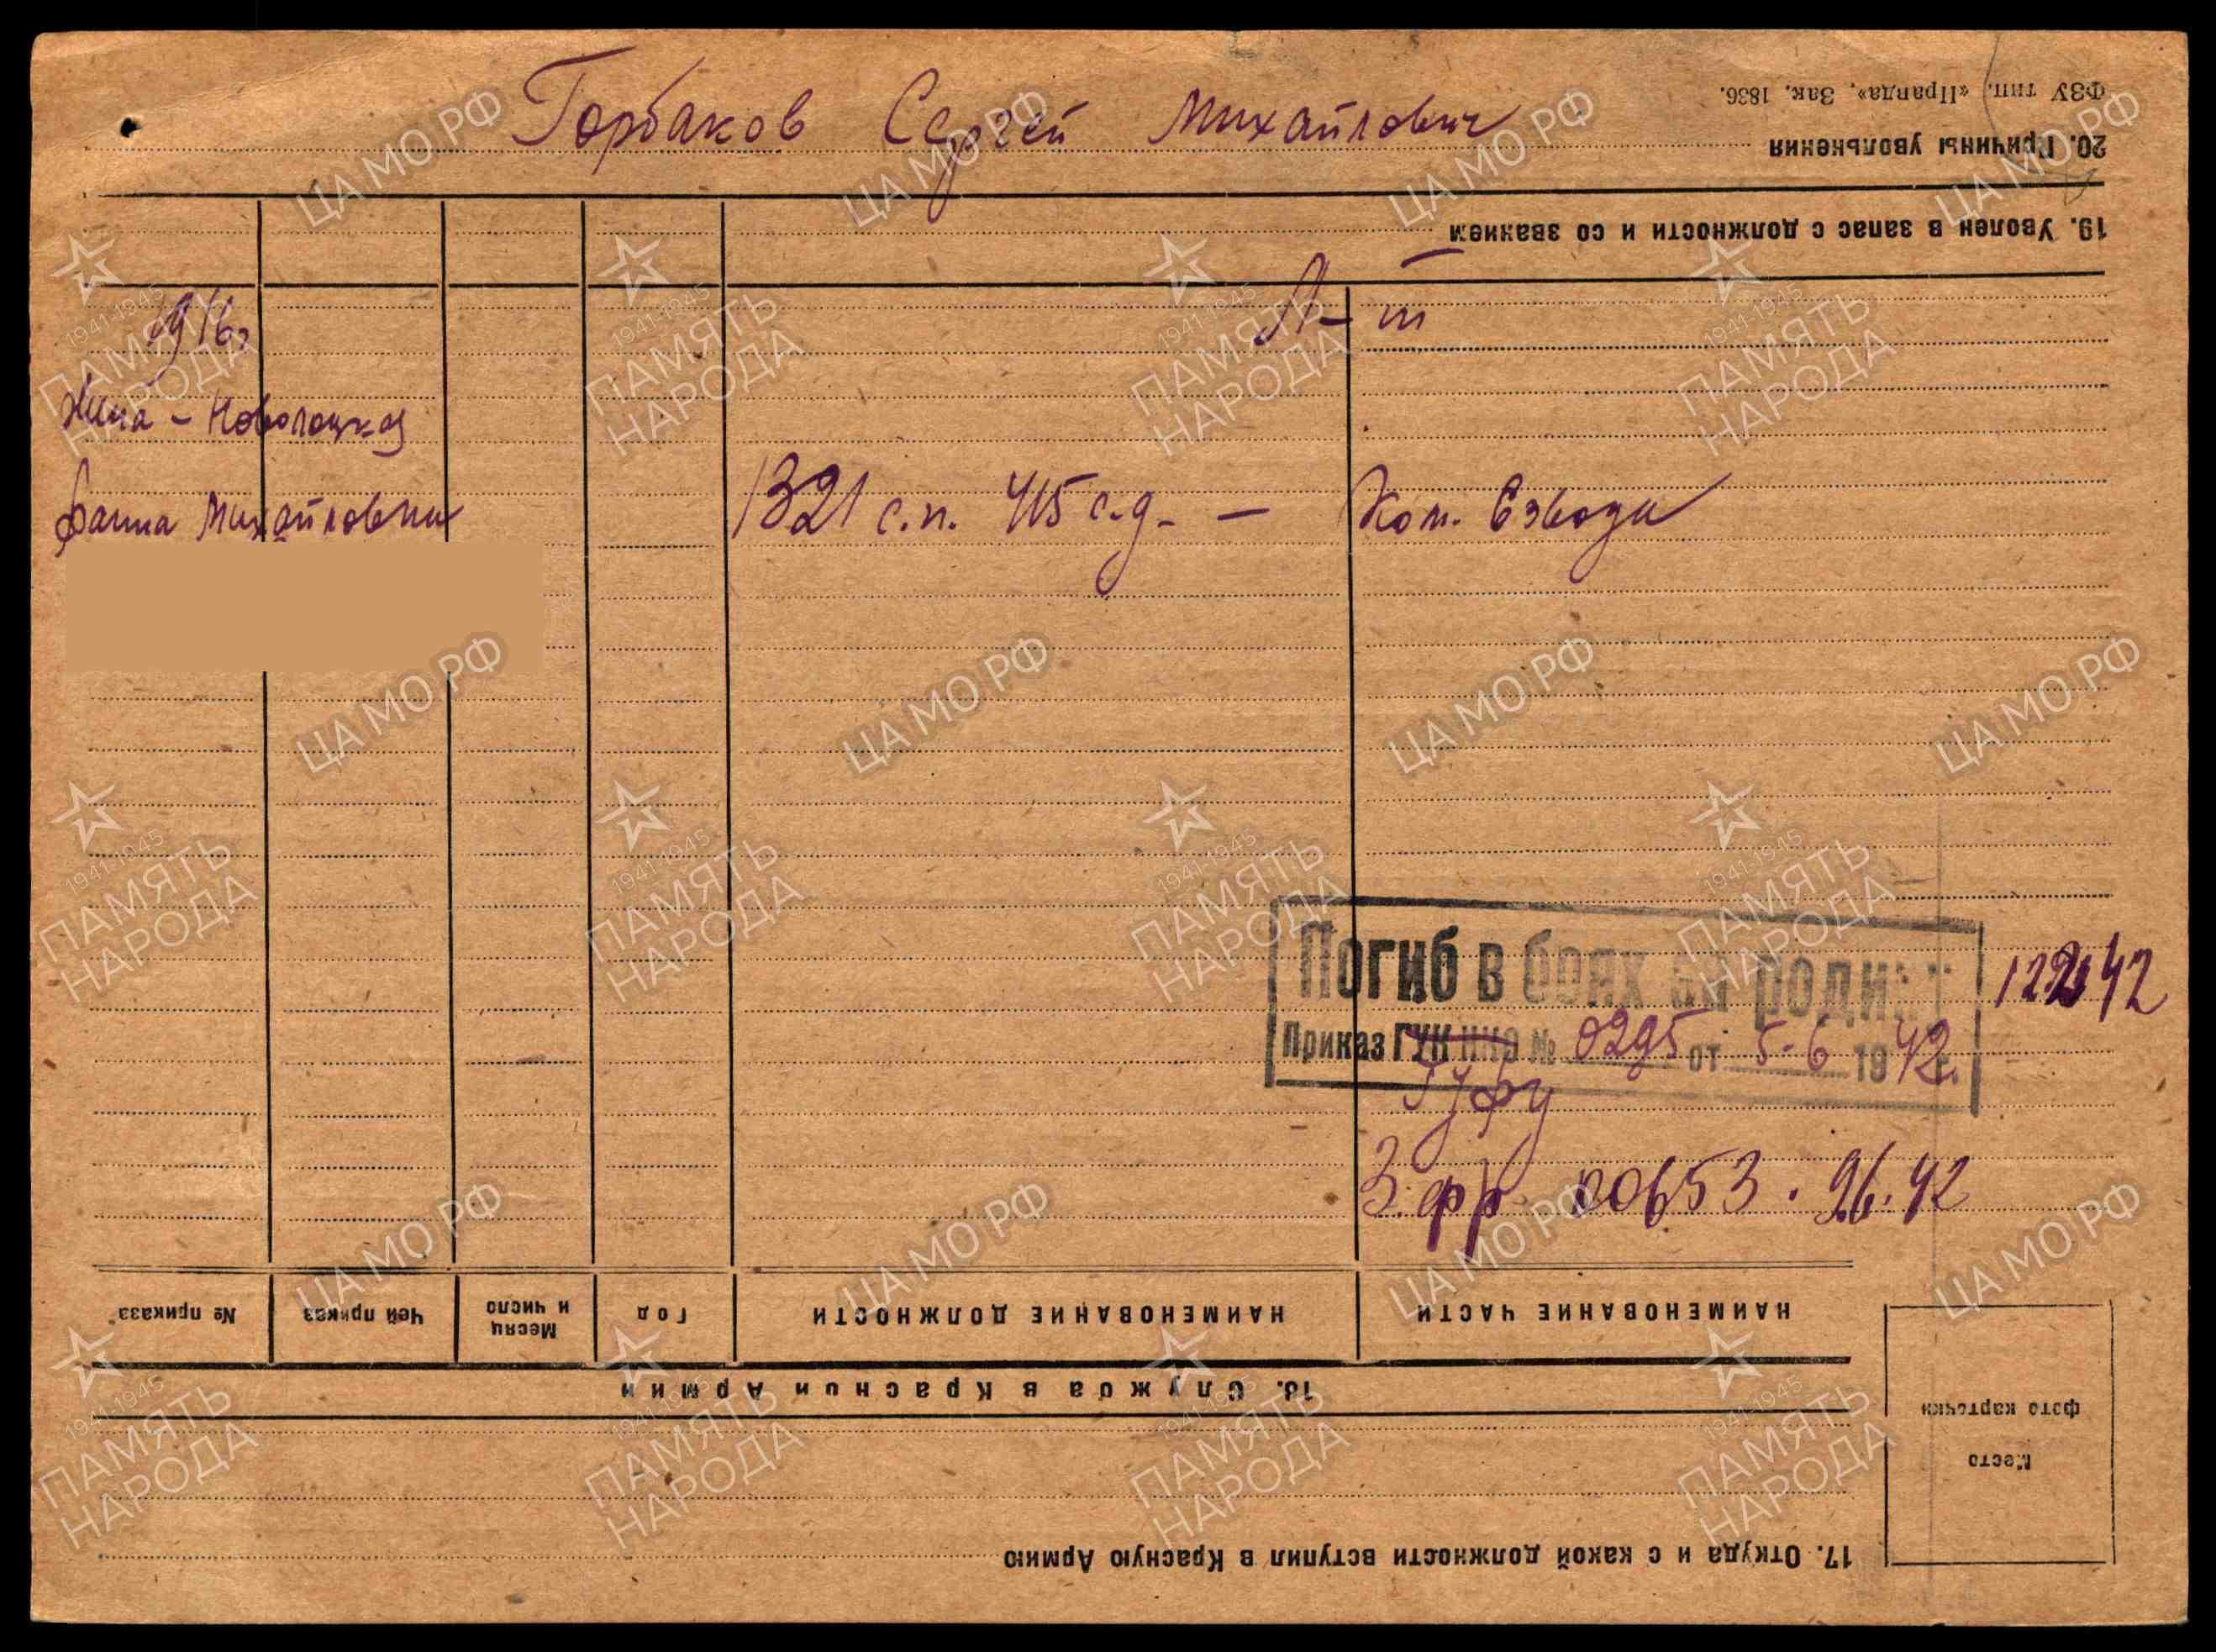 Горбаков Сергей Михайлович
1916г
Л-т
Жена - Новолоцкая
Фаина Михайловна
1321 с.п. 415 с.д. - Ком. взвода
Погиб в боях за родину
12 2 42
Приказ ГУК НКО № 0295 от 5-6 1942г.
Гуфу
З.фр 00653. 9.6.42
17. Откуда и с какой должности вступил в Красную Армию
Место
фото карточки
18. Служба в Красной Армии
НАИМЕНОВАНИЕ ЧАСТИ
НАИМЕНОВАНИЕ ДОЛЖНОСТИ
Год
Месяц и число
Чей приказ
№ приказа
19. Уволен в запас с должности и со званием
20. Причины увольнения
ФЗУ тип. «Правда». Зак. 1836.
ЦА МО РФ
1941-1945
ПАМЯТЬ
НАРОДА